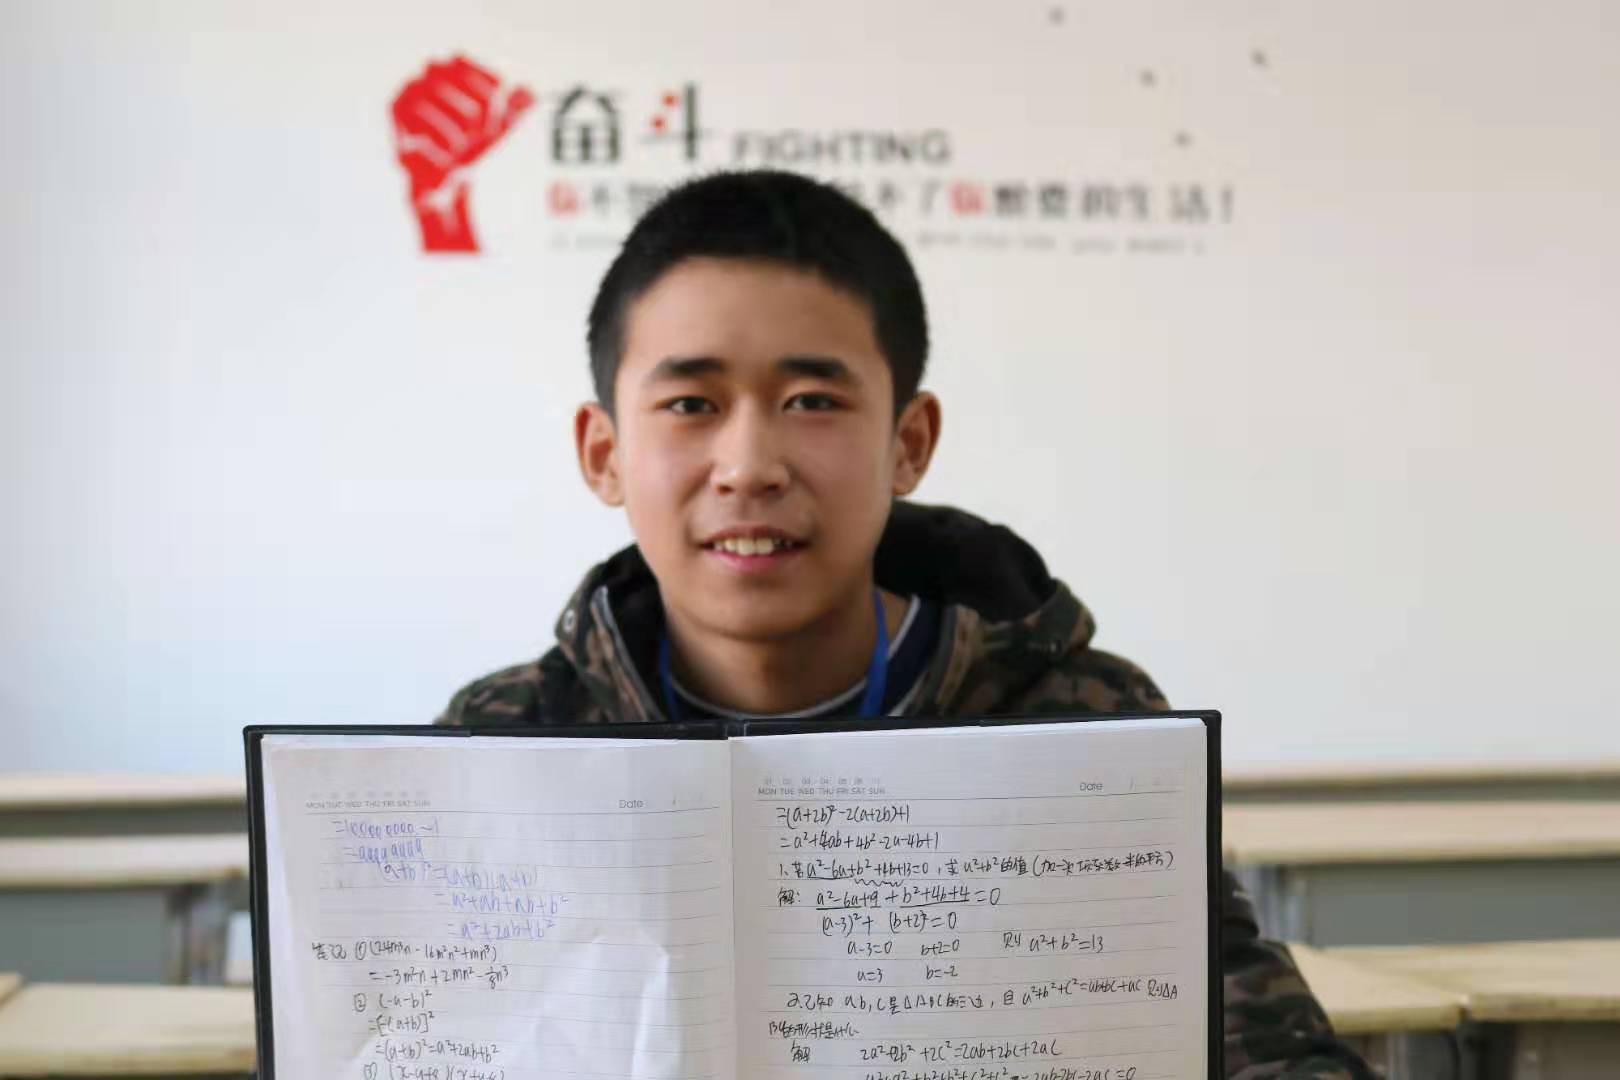 奋斗 FIGHTING
不了你想要的生活！
MON TUE WED THU FRI SAT SUN
Date
=100000000-1
=99999999
(a+b)²=(a+b)(a+b)
=a²+ab+ab+b²
=a²+2ab+b²
=-3m²n+2mn²-⅛n³
② (-a-b)²
=[-(a+b)]²
=(a+b)²=a²+2ab+b²
MON TUE WED THU FRI SAT SUN
Date
=(a+2b)²-2(a+2b)+1
=a²+4ab+4b²-2a-4b+1
1.若a²-6a+b²+4b+13=0，求a²+b²的值(加一次项系数一半的平方)
解：a²-6a+9+b²+4b+4=0
(a-3)²+(b+2)²=0
a-3=0 b+2=0 则a²+b²=13
a=3 b=-2
2.已知a,b,c是△ABC的三边，且a²+b²+c²=ab+bc+ac则△A
BC的形状是什么
解 2a²+2b²+2c²=2ab+2bc+2ac